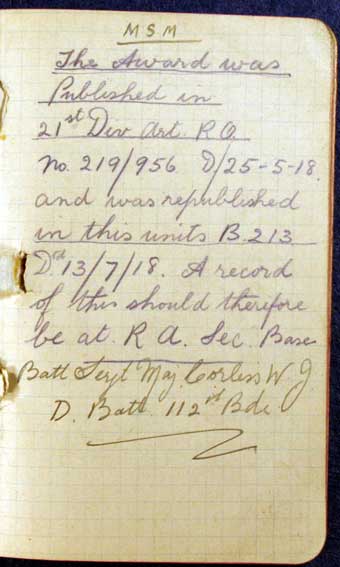 MSM
The Award was
Published in
21st Div Art. R.O.
No. 219/956 D/25-5-18.
and was republished
in this units B.213
Dd 13/7/18. A record
of this should therefore
be at R A. Sec. Base
Batt Sergt Maj Corless W. J
D. Batt. 112th Bde